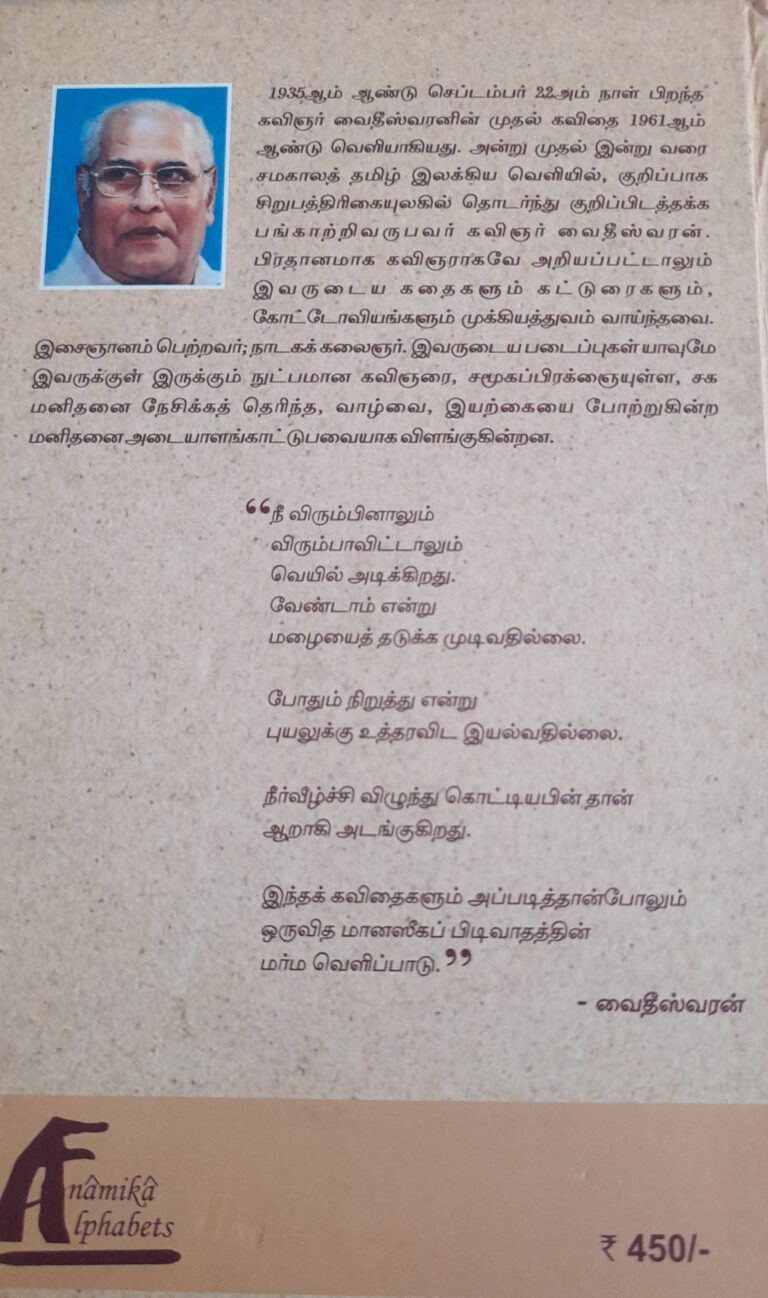 1935ஆம் ஆண்டு செப்டம்பர் 22அம் நாள் பிறந்த
கவிஞர் வைதீஸ்வரனின் முதல் கவிதை 1961ஆம்
ஆண்டு வெளியாகியது. அன்று முதல் இன்று வரை
சமகாலத் தமிழ் இலக்கிய வெளியில், குறிப்பாக
சிறுபத்திரிகையுலகில் தொடர்ந்து குறிப்பிடத்தக்க
பங்காற்றிவருபவர் கவிஞர் வைதீஸ்வரன்.
பிரதானமாக கவிஞராகவே அறியப்பட்டாலும்
இவருடைய கதைகளும் கட்டுரைகளும்,
கோட்டோவியங்களும் முக்கியத்துவம் வாய்ந்தவை.
இசைஞானம் பெற்றவர்; நாடகக் கலைஞர். இவருடைய படைப்புகள் யாவுமே
இவருக்குள் இருக்கும் நுட்பமான கவிஞரை, சமூகப்பிரக்ஞையுள்ள, சக
மனிதனை நேசிக்கத் தெரிந்த, வாழ்வை, இயற்கையை போற்றுகின்ற
மனிதனை அடையாளங்காட்டுபவையாக விளங்குகின்றன.
“நீ விரும்பினாலும்
விரும்பாவிட்டாலும்
வெயில் அடிக்கிறது.
வேண்டாம் என்று
மழையைத் தடுக்க முடிவதில்லை.
போதும் நிறுத்து என்று
புயலுக்கு உத்தரவிட இயல்வதில்லை.
நீர்வீழ்ச்சி விழுந்து கொட்டியபின் தான்
ஆறாகி அடங்குகிறது.
இந்தக் கவிதைகளும் அப்படித்தான்போலும்
ஒருவித மானஸீகப் பிடிவாதத்தின்
மர்ம வெளிப்பாடு.”
- வைதீஸ்வரன்
Anâmikâ
Alphabets
₹ 450/-